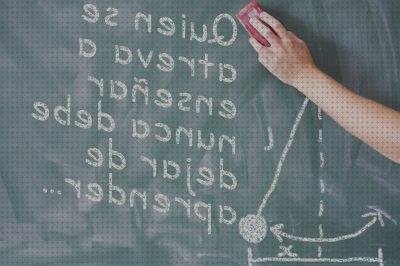 Quien se
atreva a
enseñar
nunca debe
dejar de
aprender...
l
x